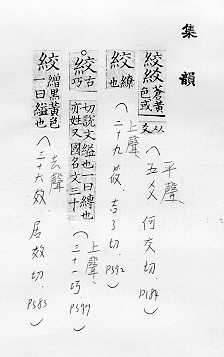 集韻
絞紋 蒼黃色或从交 (平聲 五爻 何交切. P184)
絞 繚也 (上聲 二十九筱. 吉了切. P392)
絞 古巧切說文縊也一曰縛也亦姓又國名文三十 (上聲. 三十一巧 P397)
絞 繒黑黃色一曰縊也 (去聲 三十六效. 居效切. P583)